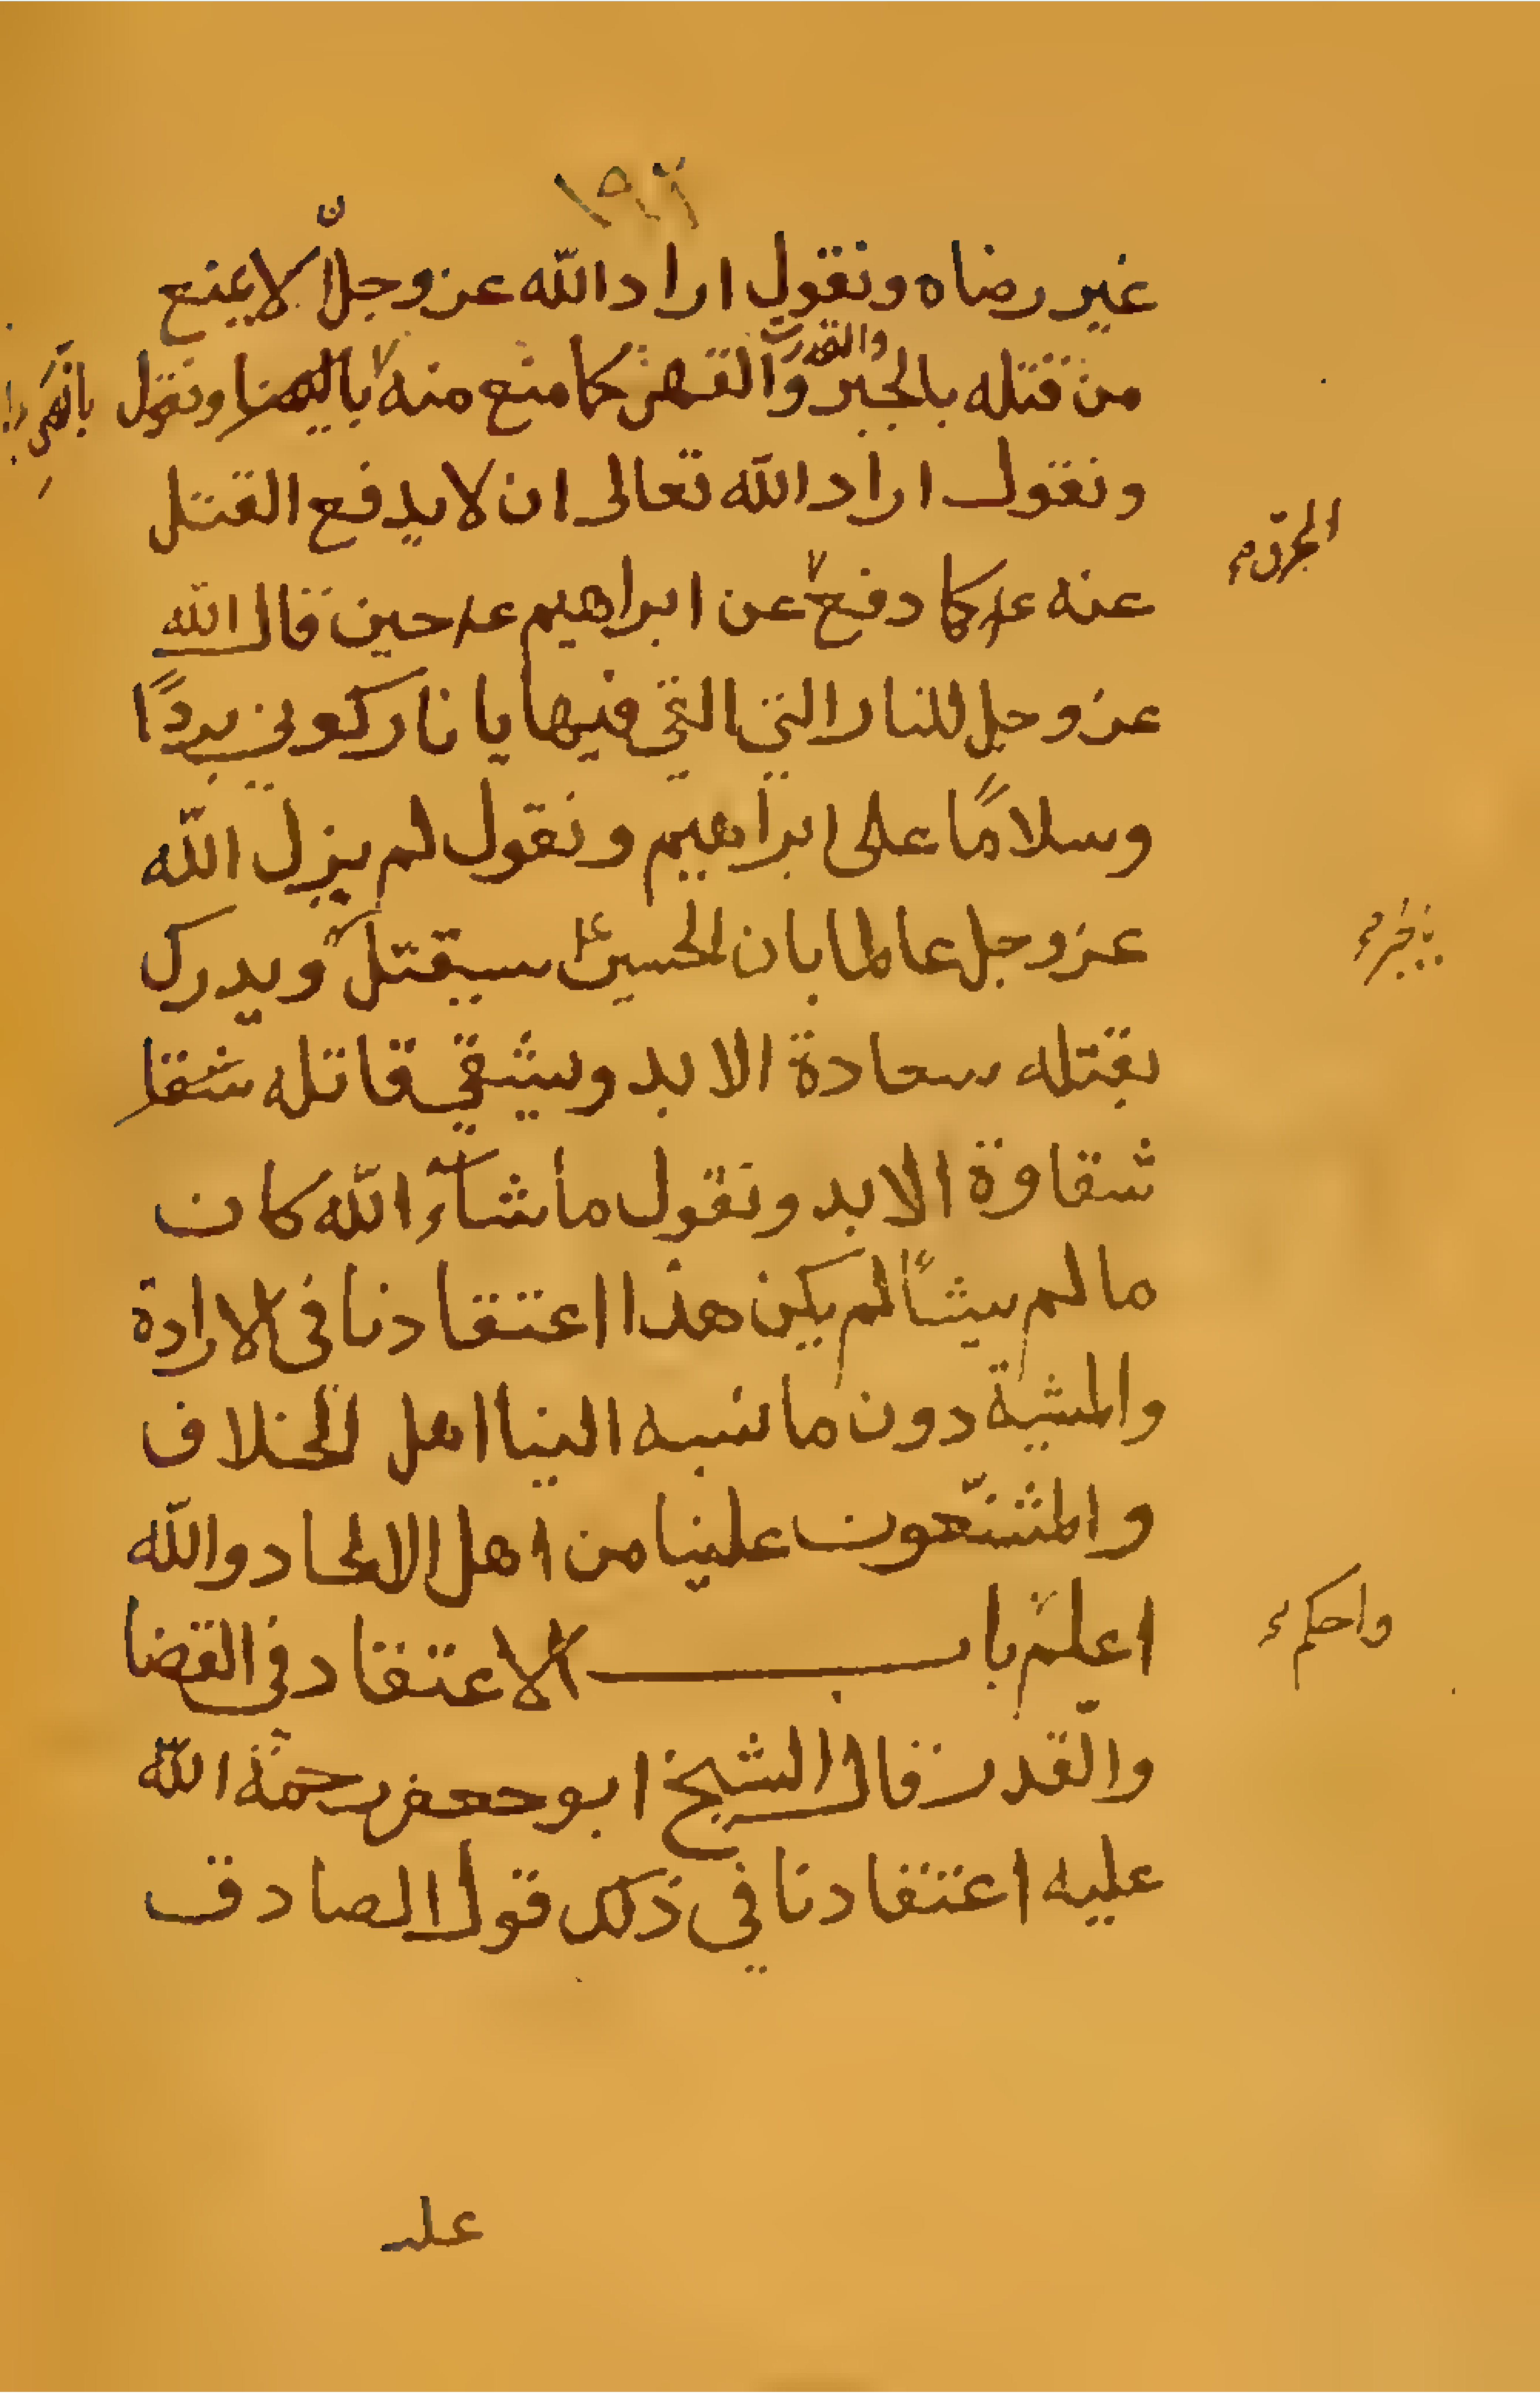 غير رضاه ونقول اراد الله عز وجل ان لا يمنع
من قتله بالجبر والقدرت والقهر كما منع منه بالنهي ونقول
ونقول اراد الله تعالى ان لا يدفع القتل
عنه عد كما دفع عن ابراهيم عد حين قال الله
عز وجل للنار التي القي فيها يا نار كوني بردًا
وسلامًا على ابراهيم ونقول لم يزل الله
عز وجل عالما بان الحسين ع سيقتل ويدرك
بقتله سعادة الابد ويشقي قاتله شقا
شقاوة الابد ونقول ما شآء الله كان
ما لم يشأ لم يكن هذا اعتقادنا في الارادة
والمشية دون ما نسبه الينا اهل الخلاف
والمشنّعون علينا من اهل الالحاد والله
اعلم باب الاعتقاد في القضا
والقدر قال الشيخ ابو جعفر رحمة الله
عليه اعتقادنا في ذلك قول الصادق
واحكم
علـ